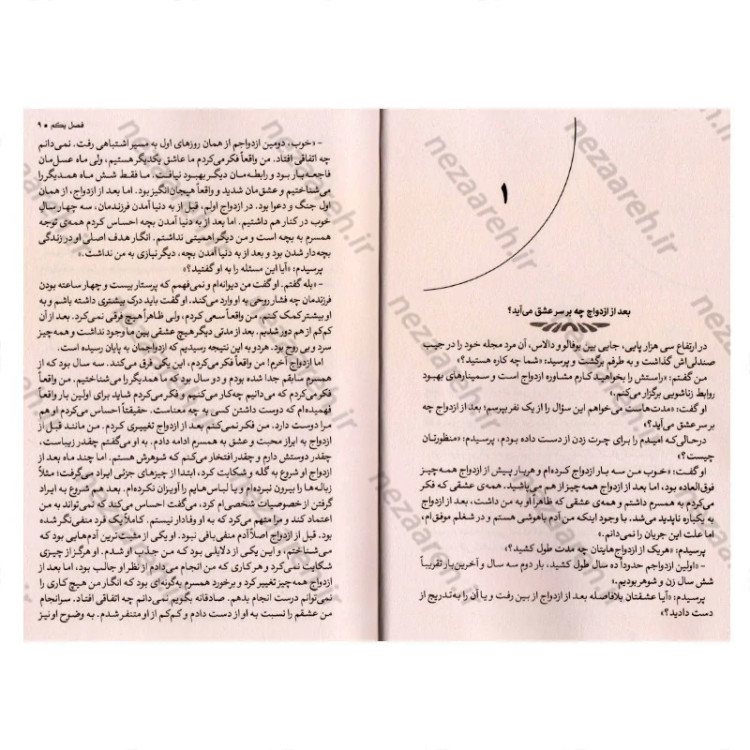 ۱
بعد از ازدواج چه بر سر عشق می‌آید؟
در ارتفاع سی هزار پایی، جایی بین بوفالو و دالاس، آن مرد مجله خود را در جیب
صندلی‌اش گذاشت و به طرفم برگشت و پرسید: «شما چه کاره هستید؟»
من گفتم: «راستش را بخواهید کارم مشاوره ازدواج است و سمینارهای بهبود
روابط زناشویی برگزار می‌کنم.»
او گفت: «مدت‌هاست می‌خواهم این سؤال را از یک نفر بپرسم؛ بعد از ازدواج چه
بر سر عشق می‌آید؟»
درحالی‌که امیدم را برای چرت زدن از دست داده بودم، پرسیدم: «منظورتان
چیست؟»
او گفت: «خوب من سه بار ازدواج کرده‌ام و هربار پیش از ازدواج همه‌چیز
فوق‌العاده بود، اما بعد از ازدواج همه چیز از هم می‌پاشید. همه‌ی عشقی که فکر
می‌کردم به همسرم داشتم و همه‌ی عشقی که ظاهراً او به من داشت، بعد از ازدواج
به یکباره ناپدید می‌شد، با وجود اینکه من آدم باهوشی هستم و در شغلم موفق‌ام،
اما علت این جریان را نمی‌دانم.»
پرسیدم: «هریک از ازدواج‌هایتان چه مدت طول کشید؟»
- «اولین ازدواجم حدوداً ده سال طول کشید، بار دوم سه سال و آخرین‌بار تقریباً
شش سال زن و شوهر بودیم.»
پرسیدم: «آیا عشقتان بلافاصله بعد از ازدواج از بین رفت و یا آن را به‌تدریج از
دست دادید؟»
فصل یکم ■ ۹
- «خوب، دومین ازدواجم از همان روزهای اول به مسیر اشتباهی رفت. نمی‌دانم
چه اتفاقی افتاد. من واقعاً فکر می‌کردم ما عاشق یکدیگر هستیم، ولی ماه عسل‌مان
فاجعه‌بار بود و رابطه‌مان دیگر بهبود نیافت. ما فقط شش ماه همدیگر را
می‌شناختیم و عشق‌مان شدید و واقعاً هیجان‌انگیز بود. اما بعد از ازدواج، از همان
اول جنگ و دعوا بود. در ازدواج اولم، قبل از به دنیا آمدن فرزندمان، سه چهار سالِ
خوب در کنار هم داشتیم. اما بعد از به دنیا آمدن بچه احساس کردم همه‌ی توجه
همسرم به بچه است و من دیگر اهمیتی نداشتم. انگار هدف اصلی او در زندگی
بچه‌دار شدن بود و بعد از به دنیا آمدن بچه، دیگر نیازی به من نداشت.»
پرسیدم: «آیا این مسئله را به او گفتید؟»
- «بله گفتم. او گفت من دیوانه‌ام و نمی‌فهمم که پرستار بیست و چهار ساعته بودن
فرزندمان چه فشار روحی به او وارد می‌کند. او گفت باید درک بیشتری داشته باشم و به
او بیشتر کمک کنم. من واقعاً سعی کردم، ولی ظاهراً هیچ فرقی نمی‌کرد. بعد از آن
کم‌کم از هم دور شدیم. بعد از مدتی دیگر هیچ عشقی بین ما وجود نداشت و همه‌چیز
سرد و بی روح بود. هردو به این نتیجه رسیدیم که ازدواجمان به پایان رسیده است.
اما ازدواج آخرم! من واقعاً فکر می‌کردم، این یکی فرق می‌کند. سه سال بود که از
همسرم سابقم جدا شده بودم و دو سال بود که ما همدیگر را می‌شناختیم. من واقعاً
فکر می‌کردم که دانیم چه‌کار می‌کنیم و فکر می‌کردم شاید برای اولین بار واقعاً
فهمیده‌ام که دوست داشتن کسی به چه معناست. حقیقتاً احساس می‌کردم او هم
مرا دوست دارد. من فکر نمی‌کنم بعد از ازدواج تغییری کردم. من مانند قبل از
ازدواج به ابراز محبت و عشق به همسرم ادامه دادم. به او می‌گفتم چقدر زیباست،
چقدر دوستش دارم و چقدر افتخار می‌کنم که شوهرش هستم. اما چند ماه بعد از
ازدواج او شروع به گله و شکایت کرد، ابتدا از چیزهای جزئی ایراد می‌گرفت؛ مثلاً
زباله‌ها را بیرون نبرده‌ام و یا لباس‌هایم را آویزان نکرده‌ام. بعد هم شروع به ایراد
گرفتن از خصوصیات شخصی‌ام کرد، می‌گفت حس می‌کند که نمی‌تواند به من
اعتماد کند و مرا متهم می‌کرد که به او وفادار نیستم. کاملاً یک فرد منفی‌نگر شده
بود. قبل از ازدواج اصلاً آدم منفی‌بافی نبود. او یکی از مثبت‌ترین آدم‌هایی بود که
می‌شناختم، و این یکی از دلایلی بود که من جذب او شدم. او هرگز از چیزی
شکایت نمی‌کرد و هر کاری که من انجام می‌دادم از نظر او جالب بود، اما بعد از ازدواج
همه چیز تغییر کرد و برخورد همسرم به‌گونه‌ای بود که انگار من هیچ کاری را
نمی‌توانم درست انجام بدهم. صادقانه بگویم نمی‌دانم چه اتفاقی افتاد. سرانجام
من عشقم را نسبت به او از دست دادم و کم‌کم از او متنفر شدم. به وضوح او نیز
nezaareh.ir